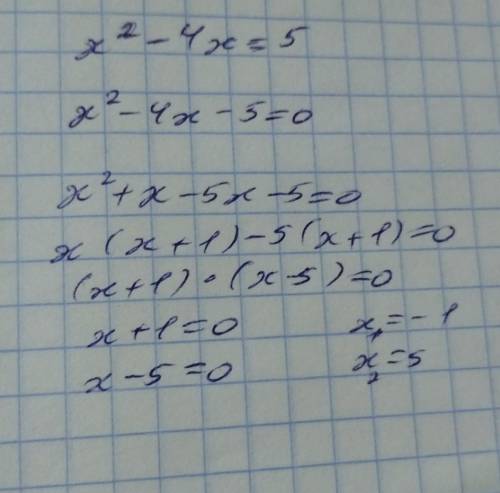 x² - 4x = 5
x² - 4x - 5 = 0
x² + x - 5x - 5 = 0
x (x + 1) - 5 (x + 1) = 0
(x + 1) · (x - 5) = 0
x + 1 = 0 x₁ = - 1
x - 5 = 0 x₂ = 5